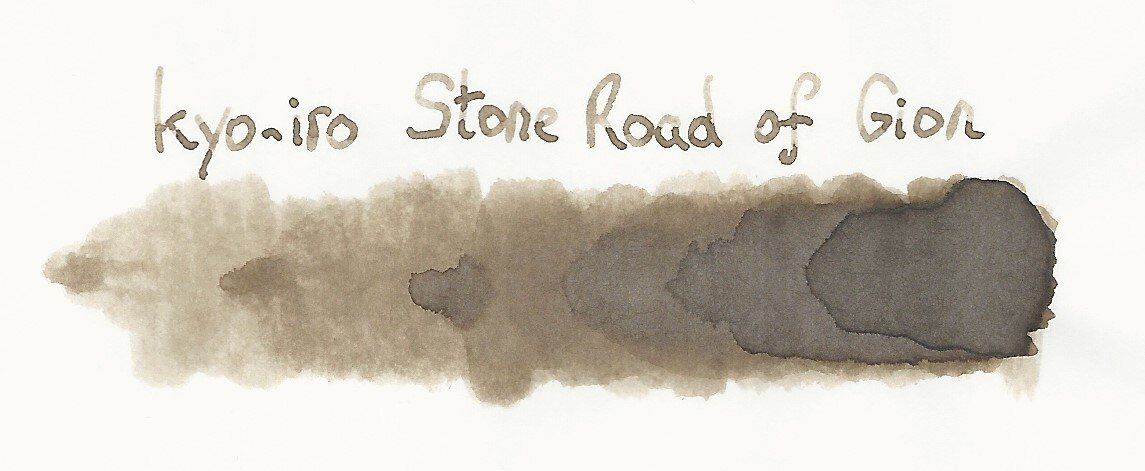 kyo-iro Stone Road of Gion